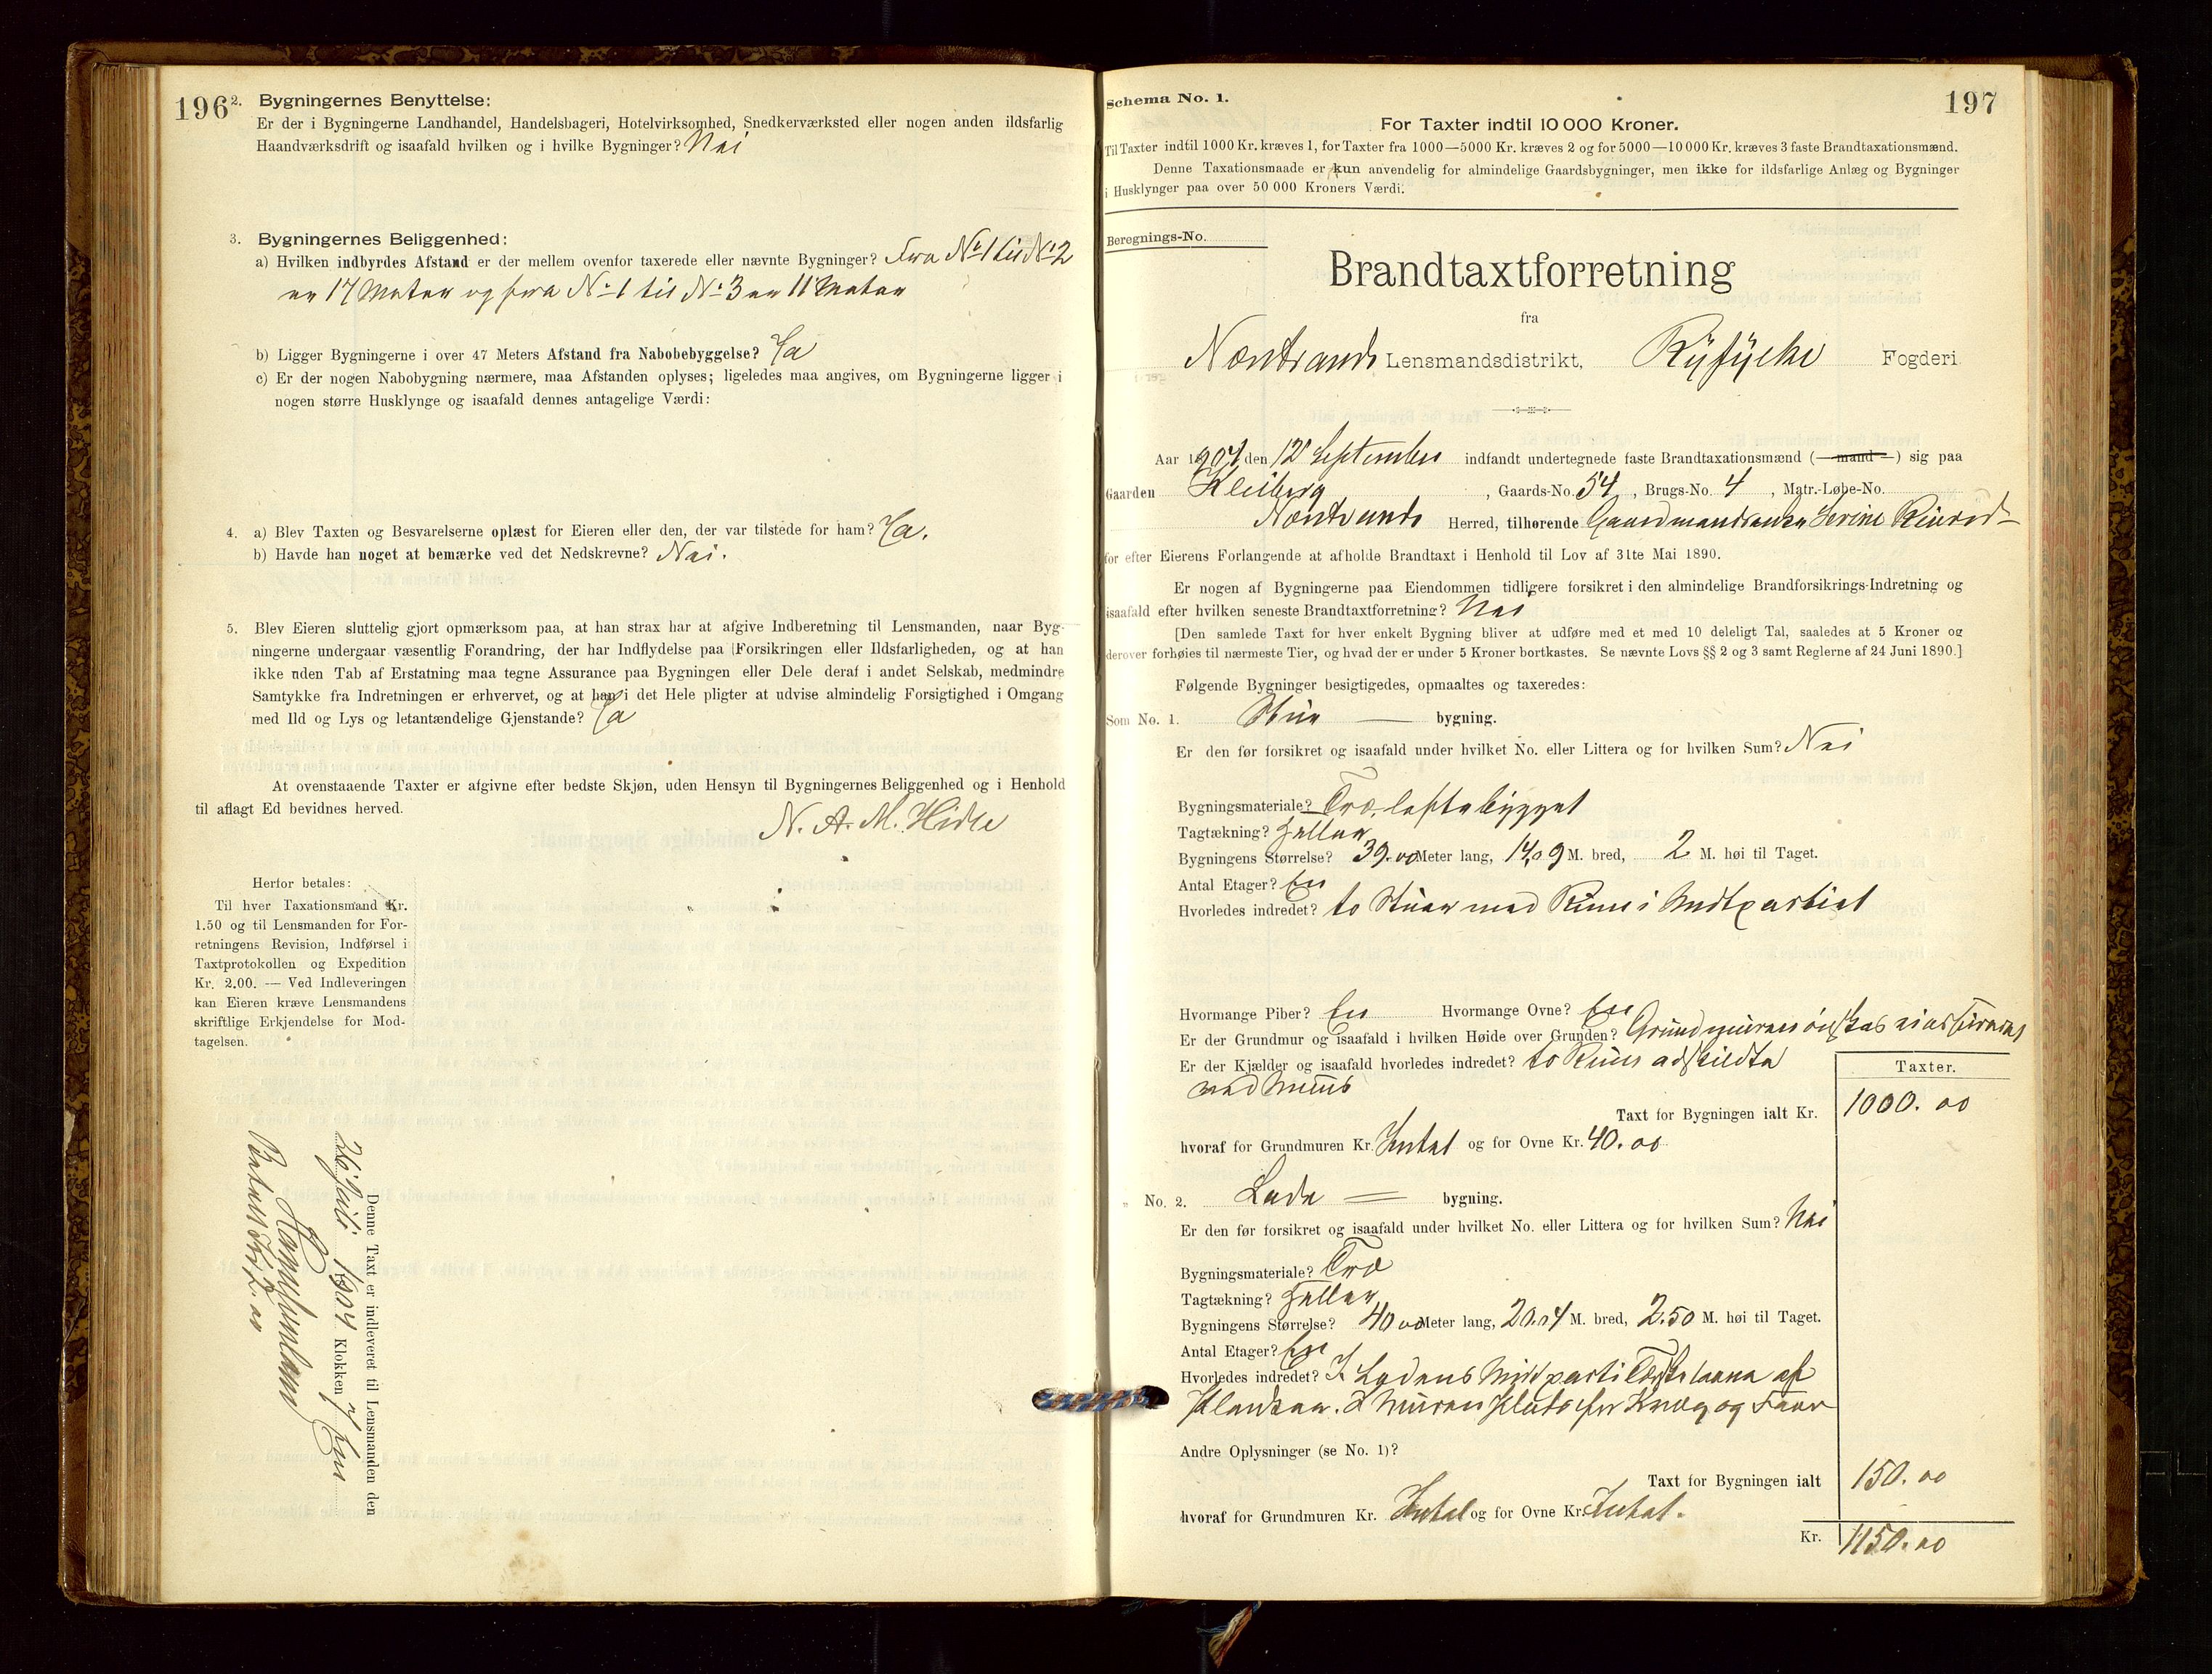 196
2. Bygningernes Benyttelse:
Er der i Bygningerne Landhandel, Handelsbageri, Hotelvirksomhed, Snedkerværksted eller nogen anden ildsfarlig
Haandværksdrift og isaafald hvilken og i hvilke Bygninger? Nei
3. Bygningernes Beliggenhed:
a) Hvilken indbyrdes Afstand er der mellem ovenfor taxerede eller nævnte Bygninger? Fra No 1 til No 2
er 17 Meter og fra No 1 til No 3 er 11 Meter
b) Ligger Bygningerne i over 47 Meters Afstand fra Nabobebyggelse? Ja
c) Er der nogen Nabobygning nærmere, maa Afstanden oplyses; ligeledes maa angives, om Bygningerne ligger i
nogen større Husklynge og isaafald dennes antagelige Værdi:
4. a) Blev Taxten og Besvarelserne oplæst for Eieren eller den, der var tilstede for ham? Ja.
b) Havde han noget at bemærke ved det Nedskrevne? Nei.
5. Blev Eieren sluttelig gjort opmærksom paa, at han strax har at afgive Indberetning til Lensmanden, naar Byg-
ningerne undergaar væsentlig Forandring, der har Indflydelse paa Forsikringen eller Ildsfarligheden, og at han
ikke uden Tab af Erstatning maa tegne Assurance paa Bygningen eller Dele deraf i andet Selskab, medmindre
Samtykke fra Indretningen er erhvervet, og at han i det Hele pligter at udvise almindelig Forsigtighed i Omgang
med Ild og Lys og letantændelige Gjenstande? Ja
At ovenstaaende Taxter er afgivne efter bedste Skjøn, uden Hensyn til Bygningernes Beliggenhed og i Henhold
til aflagt Ed bevidnes herved.
N. A. M. Hidle
Herfor betales:
Til hver Taxationsmand Kr.
1.50 og til Lensmanden for For-
retningens Revision, Indførsel i
Taxtprotokollen og Expedition
Kr. 2.00. — Ved Indleveringen
kan Eieren kræve Lensmandens
skriftlige Erkjendelse for Mod-
tagelsen.
Denne Taxt er indleveret til Lensmanden den
26 Juli 1904 Klokken 7 Em
Betalt Kr. 2.00
Schema No. 1.
197
For Taxter indtil 10 000 Kroner.
Til Taxter indtil 1000 Kr. kræves 1, for Taxter fra 1000—5000 Kr. kræves 2 og for 5000—10 000 Kr. kræves 3 faste Brandtaxationsmænd.
Denne Taxationsmaade er kun anvendelig for almindelige Gaardsbygninger, men ikke for ildsfarlige Anlæg og Bygninger
i Husklynger paa over 50 000 Kroners Værdi.
Beregnings-No.
Brandtaxtforretning
fra
Nerstrands Lensmandsdistrikt, Ryfylke Fogderi
Aar 1904 den 12 September indfandt undertegnede faste Brandtaxationsmænd (— mand —) sig paa
Gaarden Kleiberg, Gaards-No. 54, Brugs-No. 4, Matr.-Løbe-No.
Nerstrands Herred, tilhørende Gaardmandsenke Serine
for efter Eierens Forlangende at afholde Brandtaxt i Henhold til Lov af 31te Mai 1890.
Er nogen af Bygningerne paa Eiendommen tidligere forsikret i den almindelige Brandforsikrings-Indretning og
isaafald efter hvilken seneste Brandtaxtforretning? Nei
[Den samlede Taxt for hver enkelt Bygning bliver at udføre med et med 10 deleligt Tal, saaledes at 5 Kroner og
derover forhøies til nærmeste Tier, og hvad der er under 5 Kroner bortkastes. Se nævnte Lovs §§ 2 og 3 samt Reglerne af 24 Juni 1890.]
Følgende Bygninger besigtigedes, opmaaltes og taxeredes:
Som No. 1. Stue — bygning.
Er den før forsikret og isaafald under hvilket No. eller Littera og for hvilken Sum? Nei
Bygningsmateriale? Træ, loftebygget
Tagtækning? Heller
Bygningens Størrelse? 39.00 Meter lang, 14.09 M. bred, 2 M. høi til Taget.
Antal Etager? En
Hvorledes indredet? to Stuer med Rum i Midtpartiet
Hvormange Piber? En Hvormange Ovne? En
Er der Grundmur og isaafald i hvilken Høide over Grunden? Grundmuren ønskes ei assureret
Er der Kjælder og isaafald hvorledes indredet? to Rum adskildte
ved Muur
Taxter.
Taxt for Bygningen ialt Kr. 1000.00
hvoraf for Grundmuren Kr. Intet og for Ovne Kr. 40.00
" No. 2. Lade — bygning.
Er den før forsikret og isaafald under hvilket No. eller Littera og for hvilken Sum? Nei
Bygningsmateriale? Træ
Tagtækning? Heller
Bygningens Størrelse? 40.00 Meter lang, 20.04 M. bred, 2.50 M. høi til Taget.
Antal Etager? En
Hvorledes indredet? I Ladens Midtparti Tærskelaave af
Planker. I Muren Plads for Kvæg og Faar
Andre Oplysninger (se No. 1)?
Taxt for Bygningen ialt 150.00
hvoraf for Grundmuren Kr. Intet og for Ovne Kr. Intet.
Kr. 1150.00